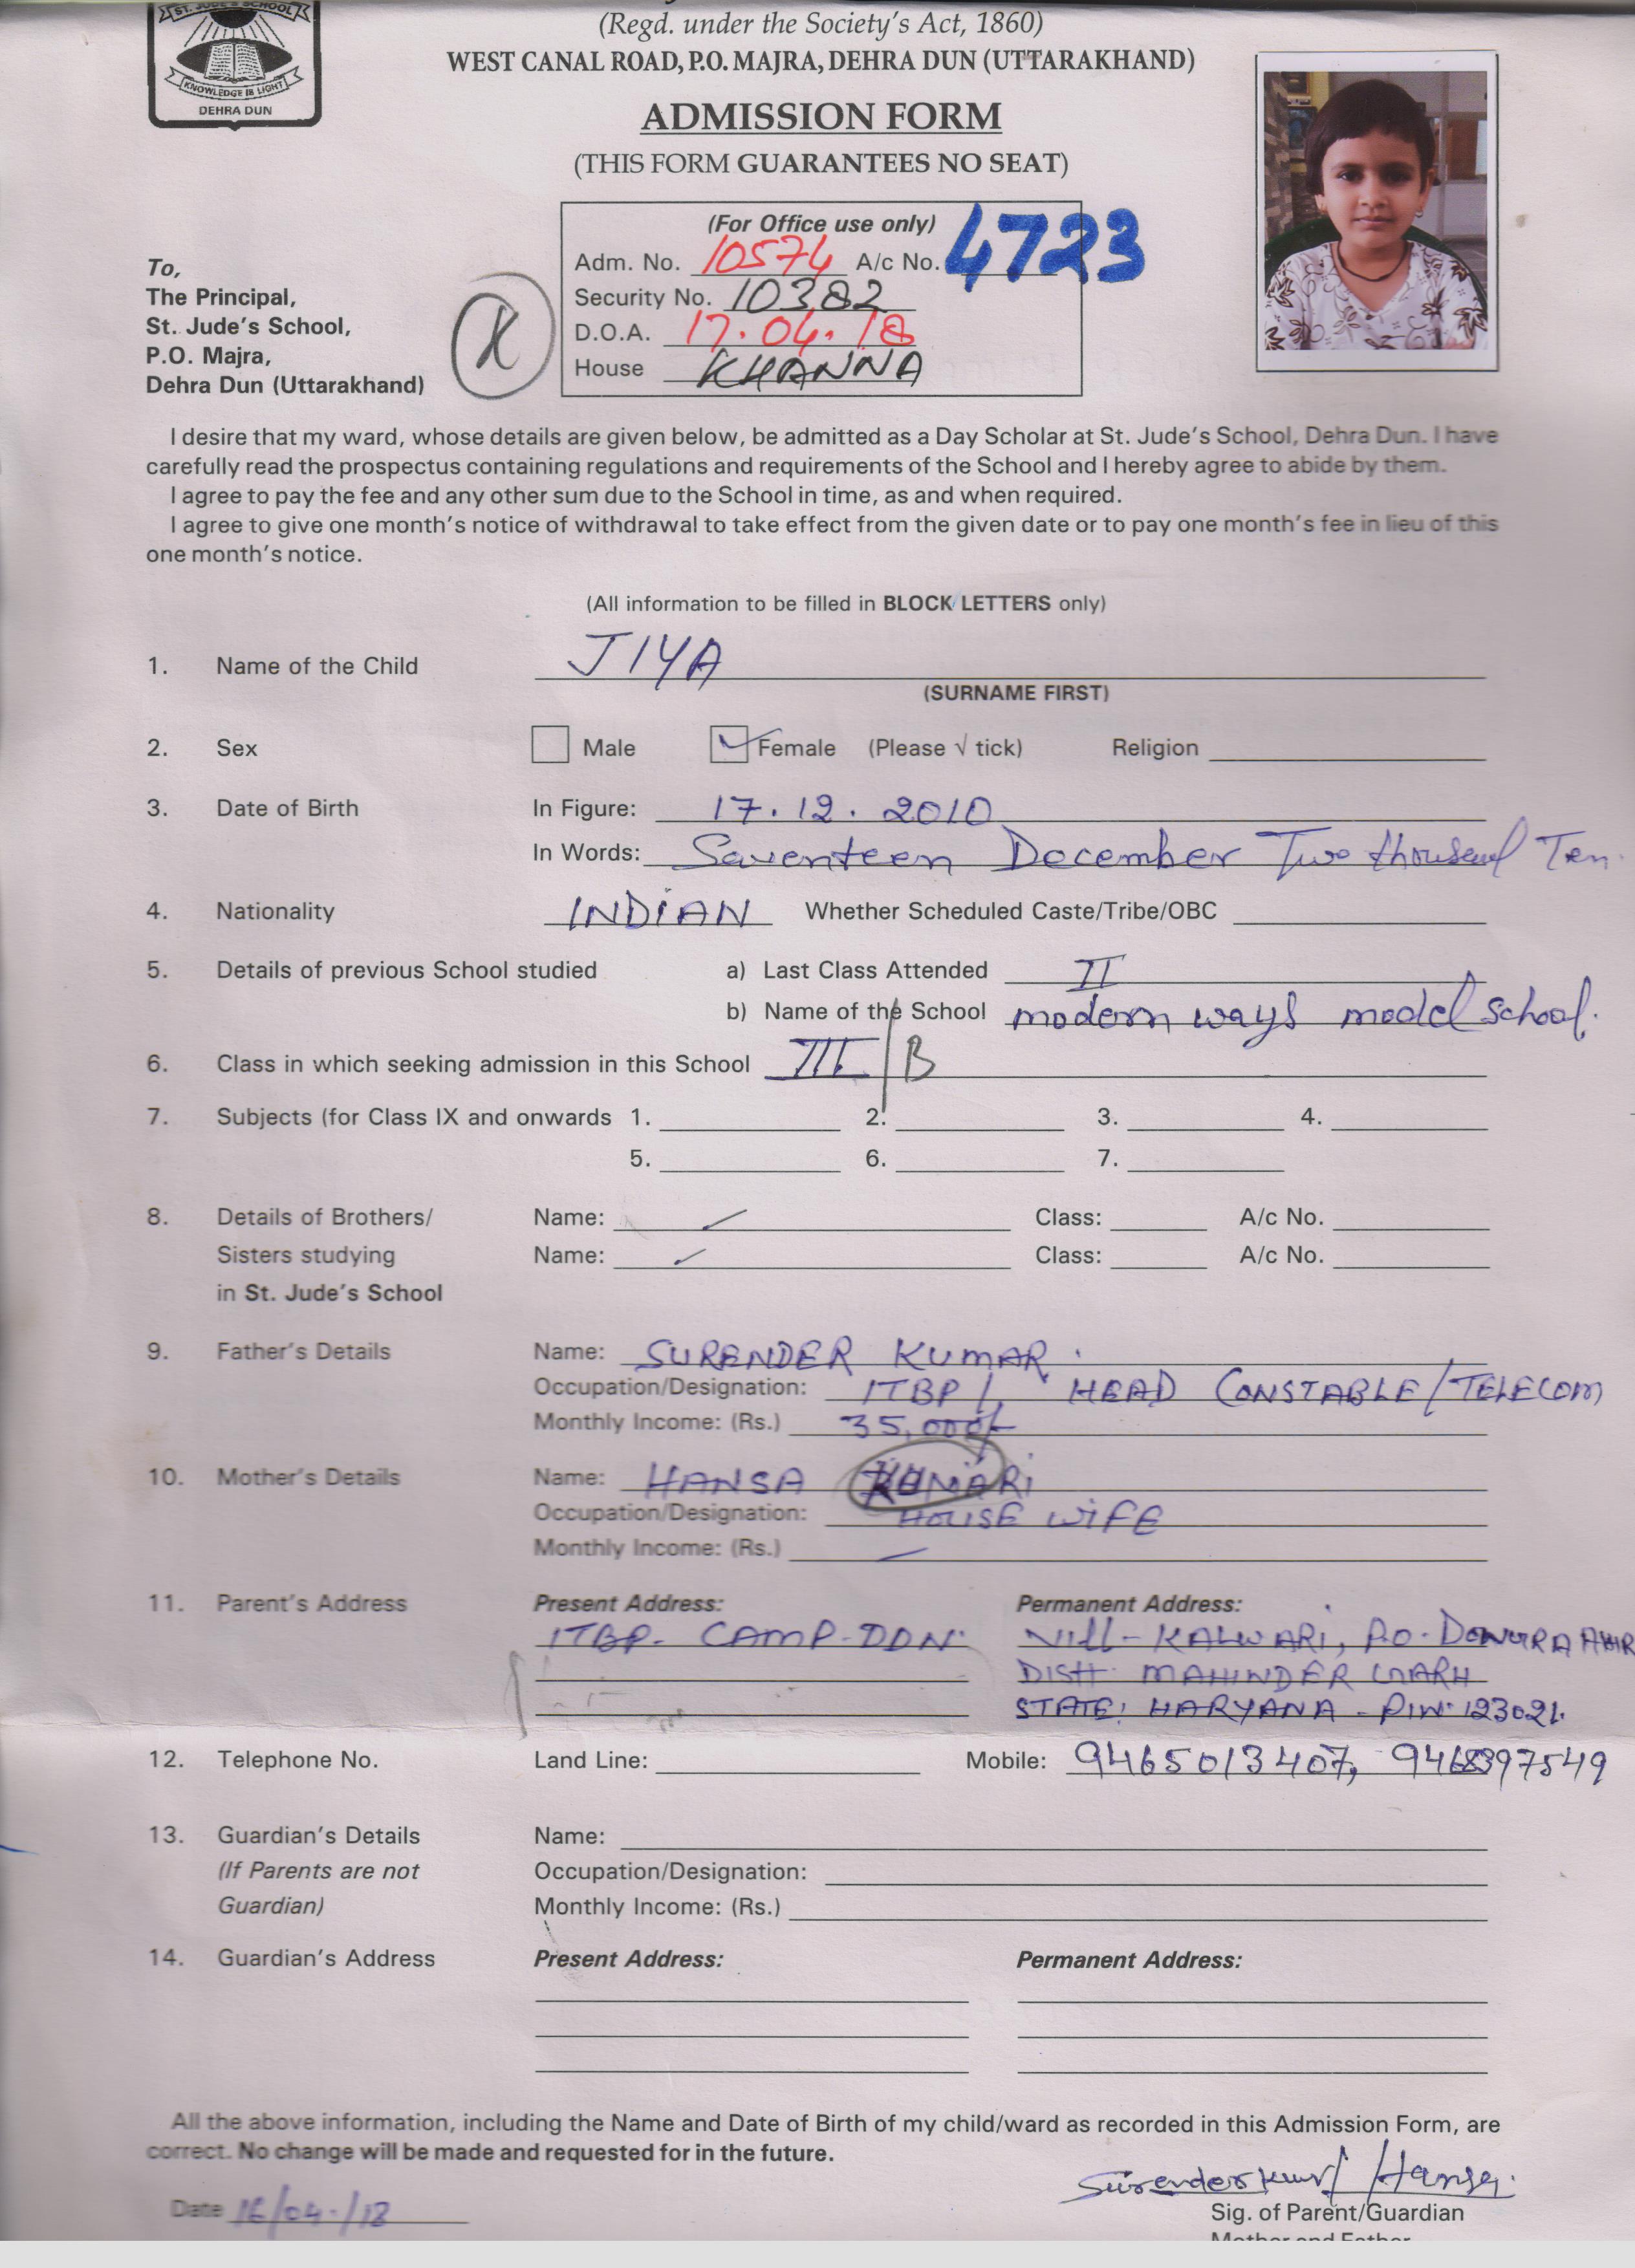 ST. JUDE'S SCHOOL
KNOWLEDGE IS LIGHT
DEHRA DUN
(Regd. under the Society's Act, 1860)
WEST CANAL ROAD, P.O. MAJRA, DEHRA DUN (UTTARAKHAND)
ADMISSION FORM
(THIS FORM GUARANTEES NO SEAT)
(For Office use only)
Adm. No. 10574 A/c No. 4723
Security No. 10382
D.O.A. 17.04.18
House KHANNA
To,
The Principal,
St. Jude's School,
P.O. Majra,
Dehra Dun (Uttarakhand)
I desire that my ward, whose details are given below, be admitted as a Day Scholar at St. Jude's School, Dehra Dun. I have
carefully read the prospectus containing regulations and requirements of the School and I hereby agree to abide by them.
I agree to pay the fee and any other sum due to the School in time, as and when required.
I agree to give one month's notice of withdrawal to take effect from the given date or to pay one month's fee in lieu of this
one month's notice.
(All information to be filled in BLOCK LETTERS only)
1. Name of the Child JIYA
(SURNAME FIRST)
2. Sex Male Female (Please √ tick) Religion
3. Date of Birth In Figure: 17.12.2010
In Words: Saventeen December Two thousend Ten.
4. Nationality INDIAN Whether Scheduled Caste/Tribe/OBC
5. Details of previous School studied a) Last Class Attended II
b) Name of the School modern ways model school.
6. Class in which seeking admission in this School III/B
7. Subjects (for Class IX and onwards 1. 2. 3. 4.
5. 6. 7.
8. Details of Brothers/ Name: Class: A/c No.
Sisters studying Name: Class: A/c No.
in St. Jude's School
9. Father's Details Name: SURENDER KUMAR.
Occupation/Designation: ITBP/, HEAD CONSTABLE/TELECOM
Monthly Income: (Rs.) 35,000/-
10. Mother's Details Name: HANSA KUMARI
Occupation/Designation: HOUSE WIFE
Monthly Income: (Rs.) —
11. Parent's Address Present Address: Permanent Address:
ITBP- CAMP-DDN. Vill- KALWARI, P.O- DONGRA AHIR
DISTT. MAHINDER GARH
STATE: HARYANA - PIN: 123021.
12. Telephone No. Land Line: Mobile: 9465013407,
13. Guardian's Details Name:
(If Parents are not Occupation/Designation:
Guardian) Monthly Income: (Rs.)
14. Guardian's Address Present Address: Permanent Address:
All the above information, including the Name and Date of Birth of my child/ward as recorded in this Admission Form, are
correct. No change will be made and requested for in the future.
Surender Kumar/ Hansa
Date 16/04/18
Sig. of Parent/Guardian
Mother and Father